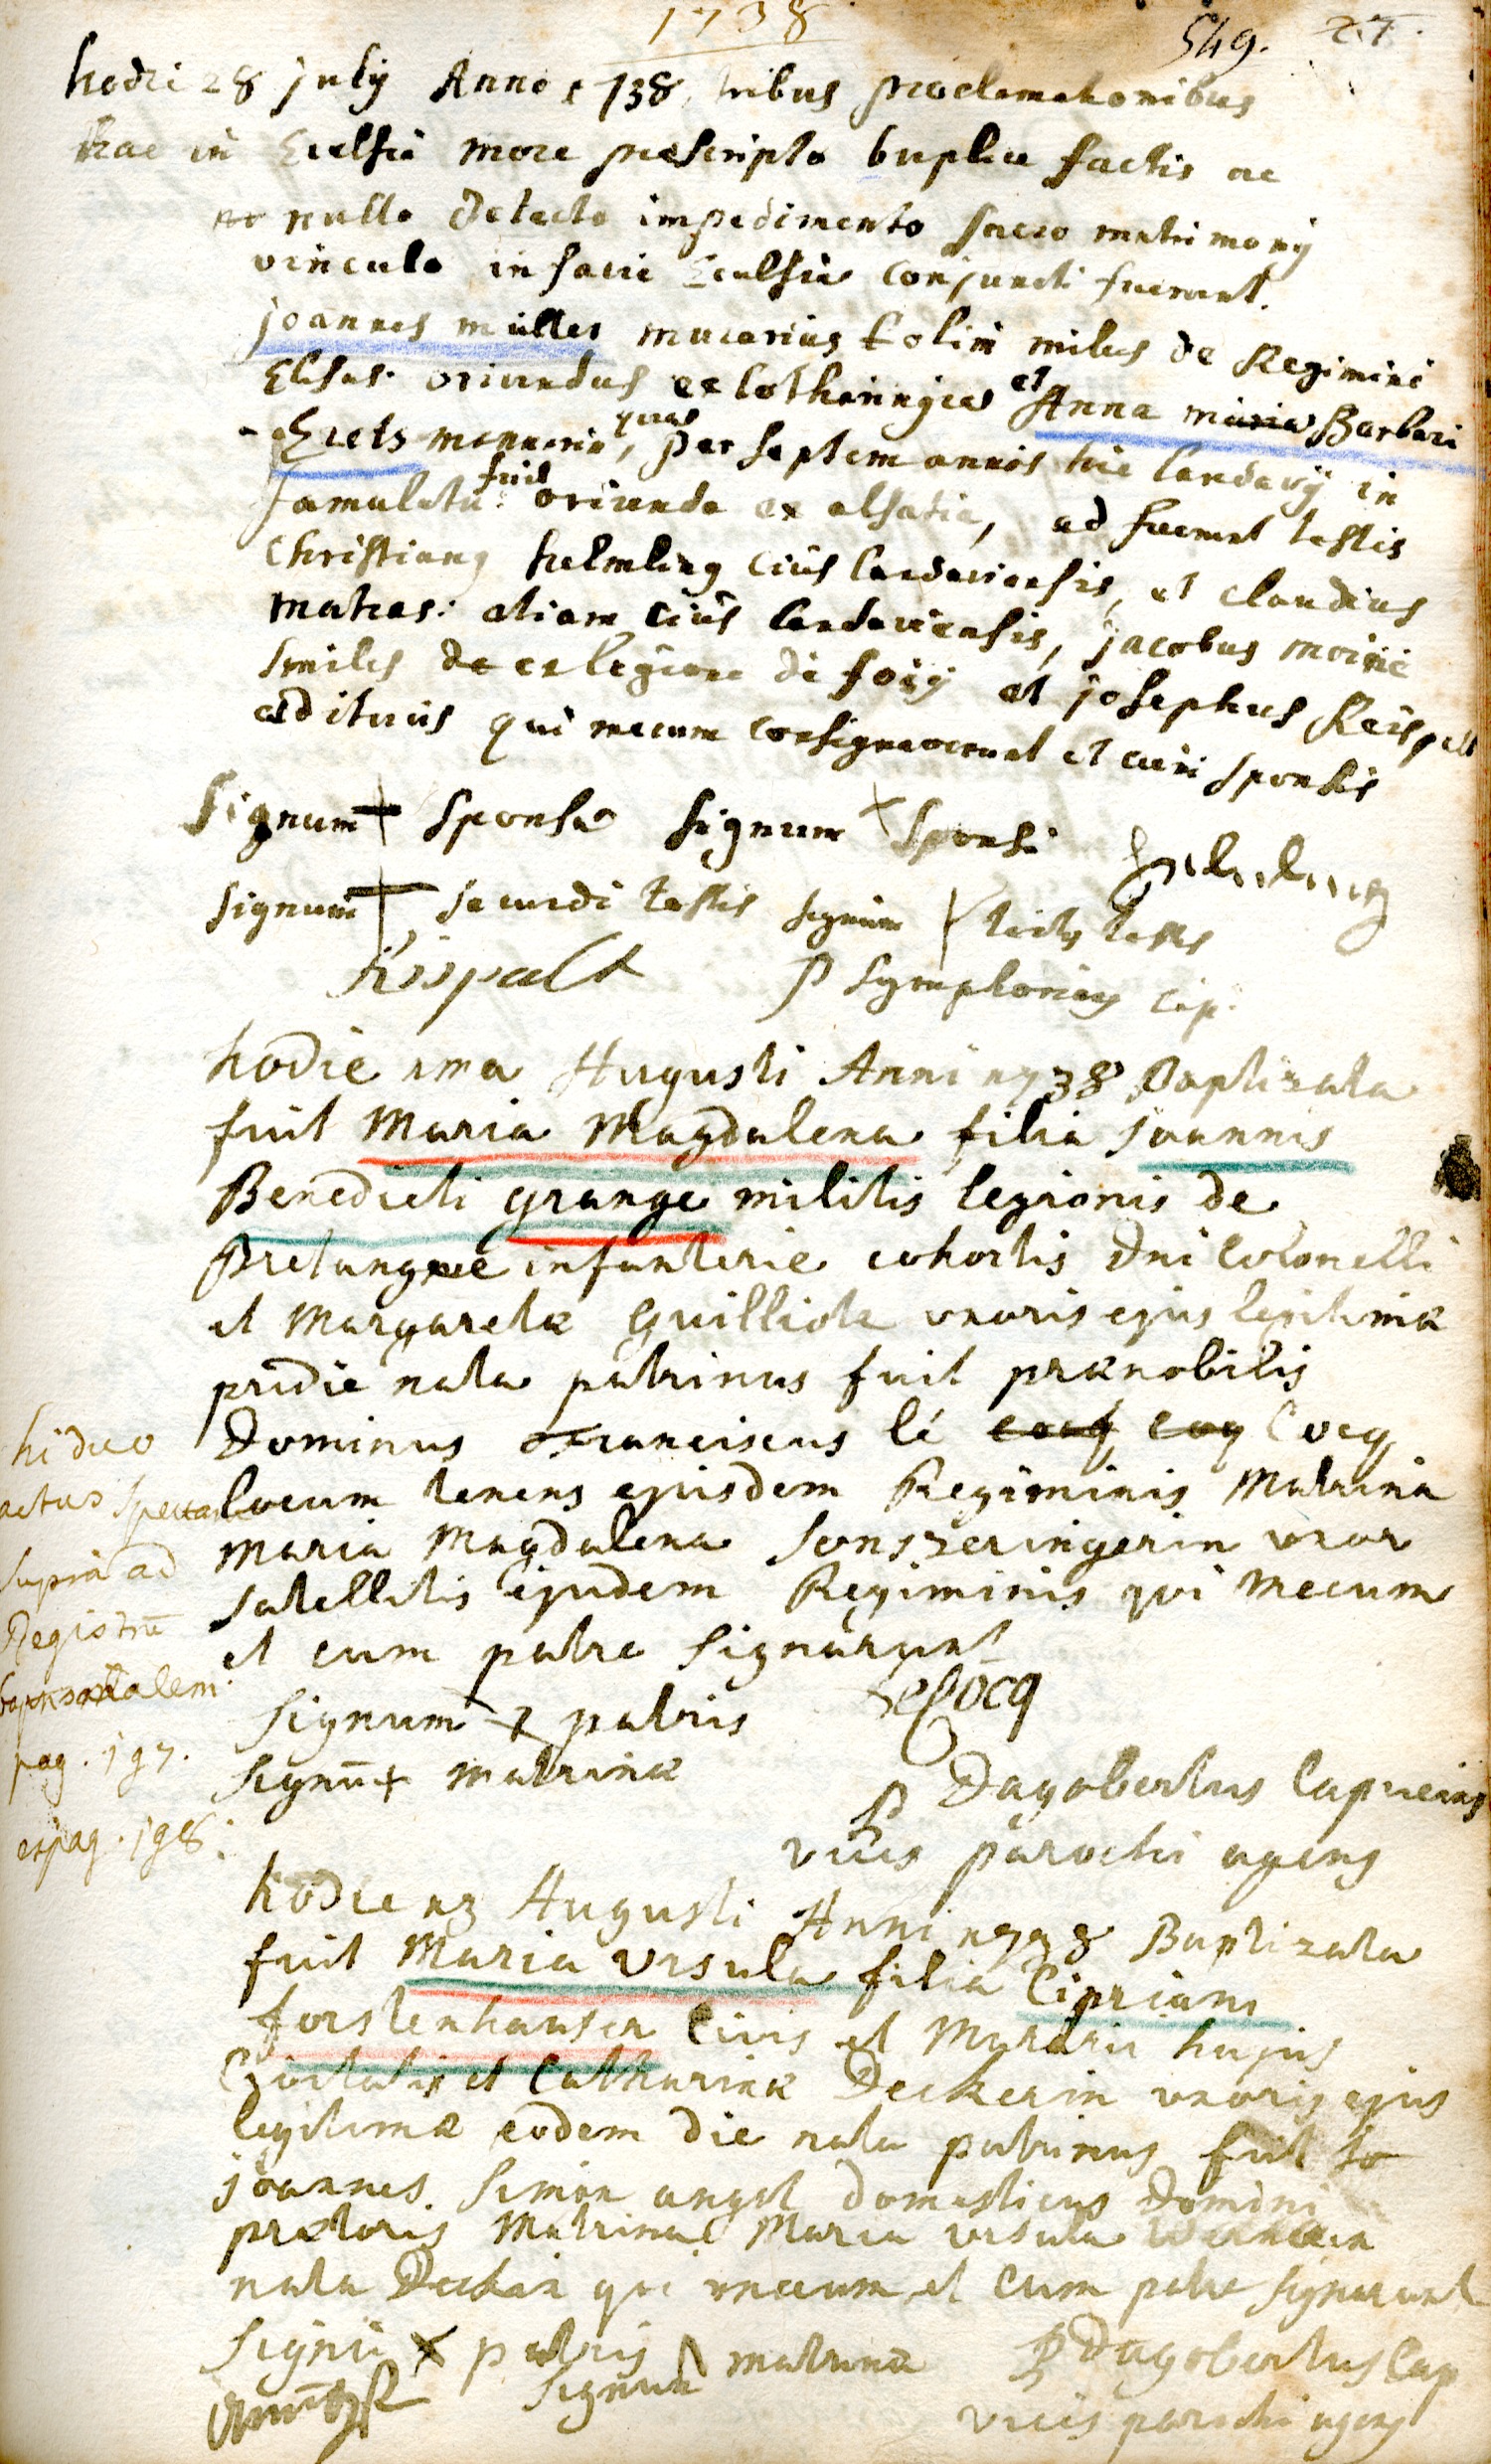 1738
549. 27.
hodie 28 july Anno 1738, tribus proclamationibus
hac in Ecclesia more prescripto duplice factis ac
nullo detecto impedimento sacro matrimonÿ
vinculo in facie Ecclesiæ conjuncti fuerunt.
joannes müller macarius miles de Regimine
Elsas. oriundus ex lotharingia et Anna maria Barbara
quae per septem annos hic landavÿ in
famulatu fuit oriunda ex alsatia, ad fuerunt testes
Christianus helmling civis landaviensis, et claudius
matras. etiam civis landaviensis, jacobus moine
miles de ex legione de foix et josephus Reispelt
ædituus qui mecum consignaverunt et cum sponsis
Signum + sponsæ signum + sponsi helmling
signum + secundi testis signum + tertii testis
Rispalt P Symphorianus cap.
hodie 1ma Augusti Anni 1738 Baptizata
fuit Maria Magdalena filia joannis
Benedicti grange militis legionis de
Bretangnee infanterie cohortis Dni Colonelli
et Margaretæ Guilliote uxoris ejus legitimæ
pridie nata patrinus fuit prænobilis
Dominus Franciscus lé cocq coq Cocq
locum tenens ejusdem Regiminis Matrina
Maria Magdalena Sonszeringerin uxor
satellitis ejusdem Regiminis qui Mecum
et cum patre signarunt
signum + patris LeCocq
signũ + Matrinæ
P Dagobertus Capucinus
vices parochi agens
hi duo
actus spectant
supra ad
Registrũ
baptismalem
pag. 197.
et pag. 198.
hodie 13 Augusti Anni 1738 Baptizata
fuit Maria Ursula filia Cipriani
forstenhauser Civis et Murarii hujus
Civitatis et Catharinæ Deckerin uxoris ejus
legitimæ eodem die nata patrinus fuit Jo
joannes Simon angst domesticus Domini
prætoris Matrina Maria Ursula
nata Deckin qui mecum et cum patre signarunt
signũ x patris signum matrinæ P Dagobertus Cap
vices parochi agens